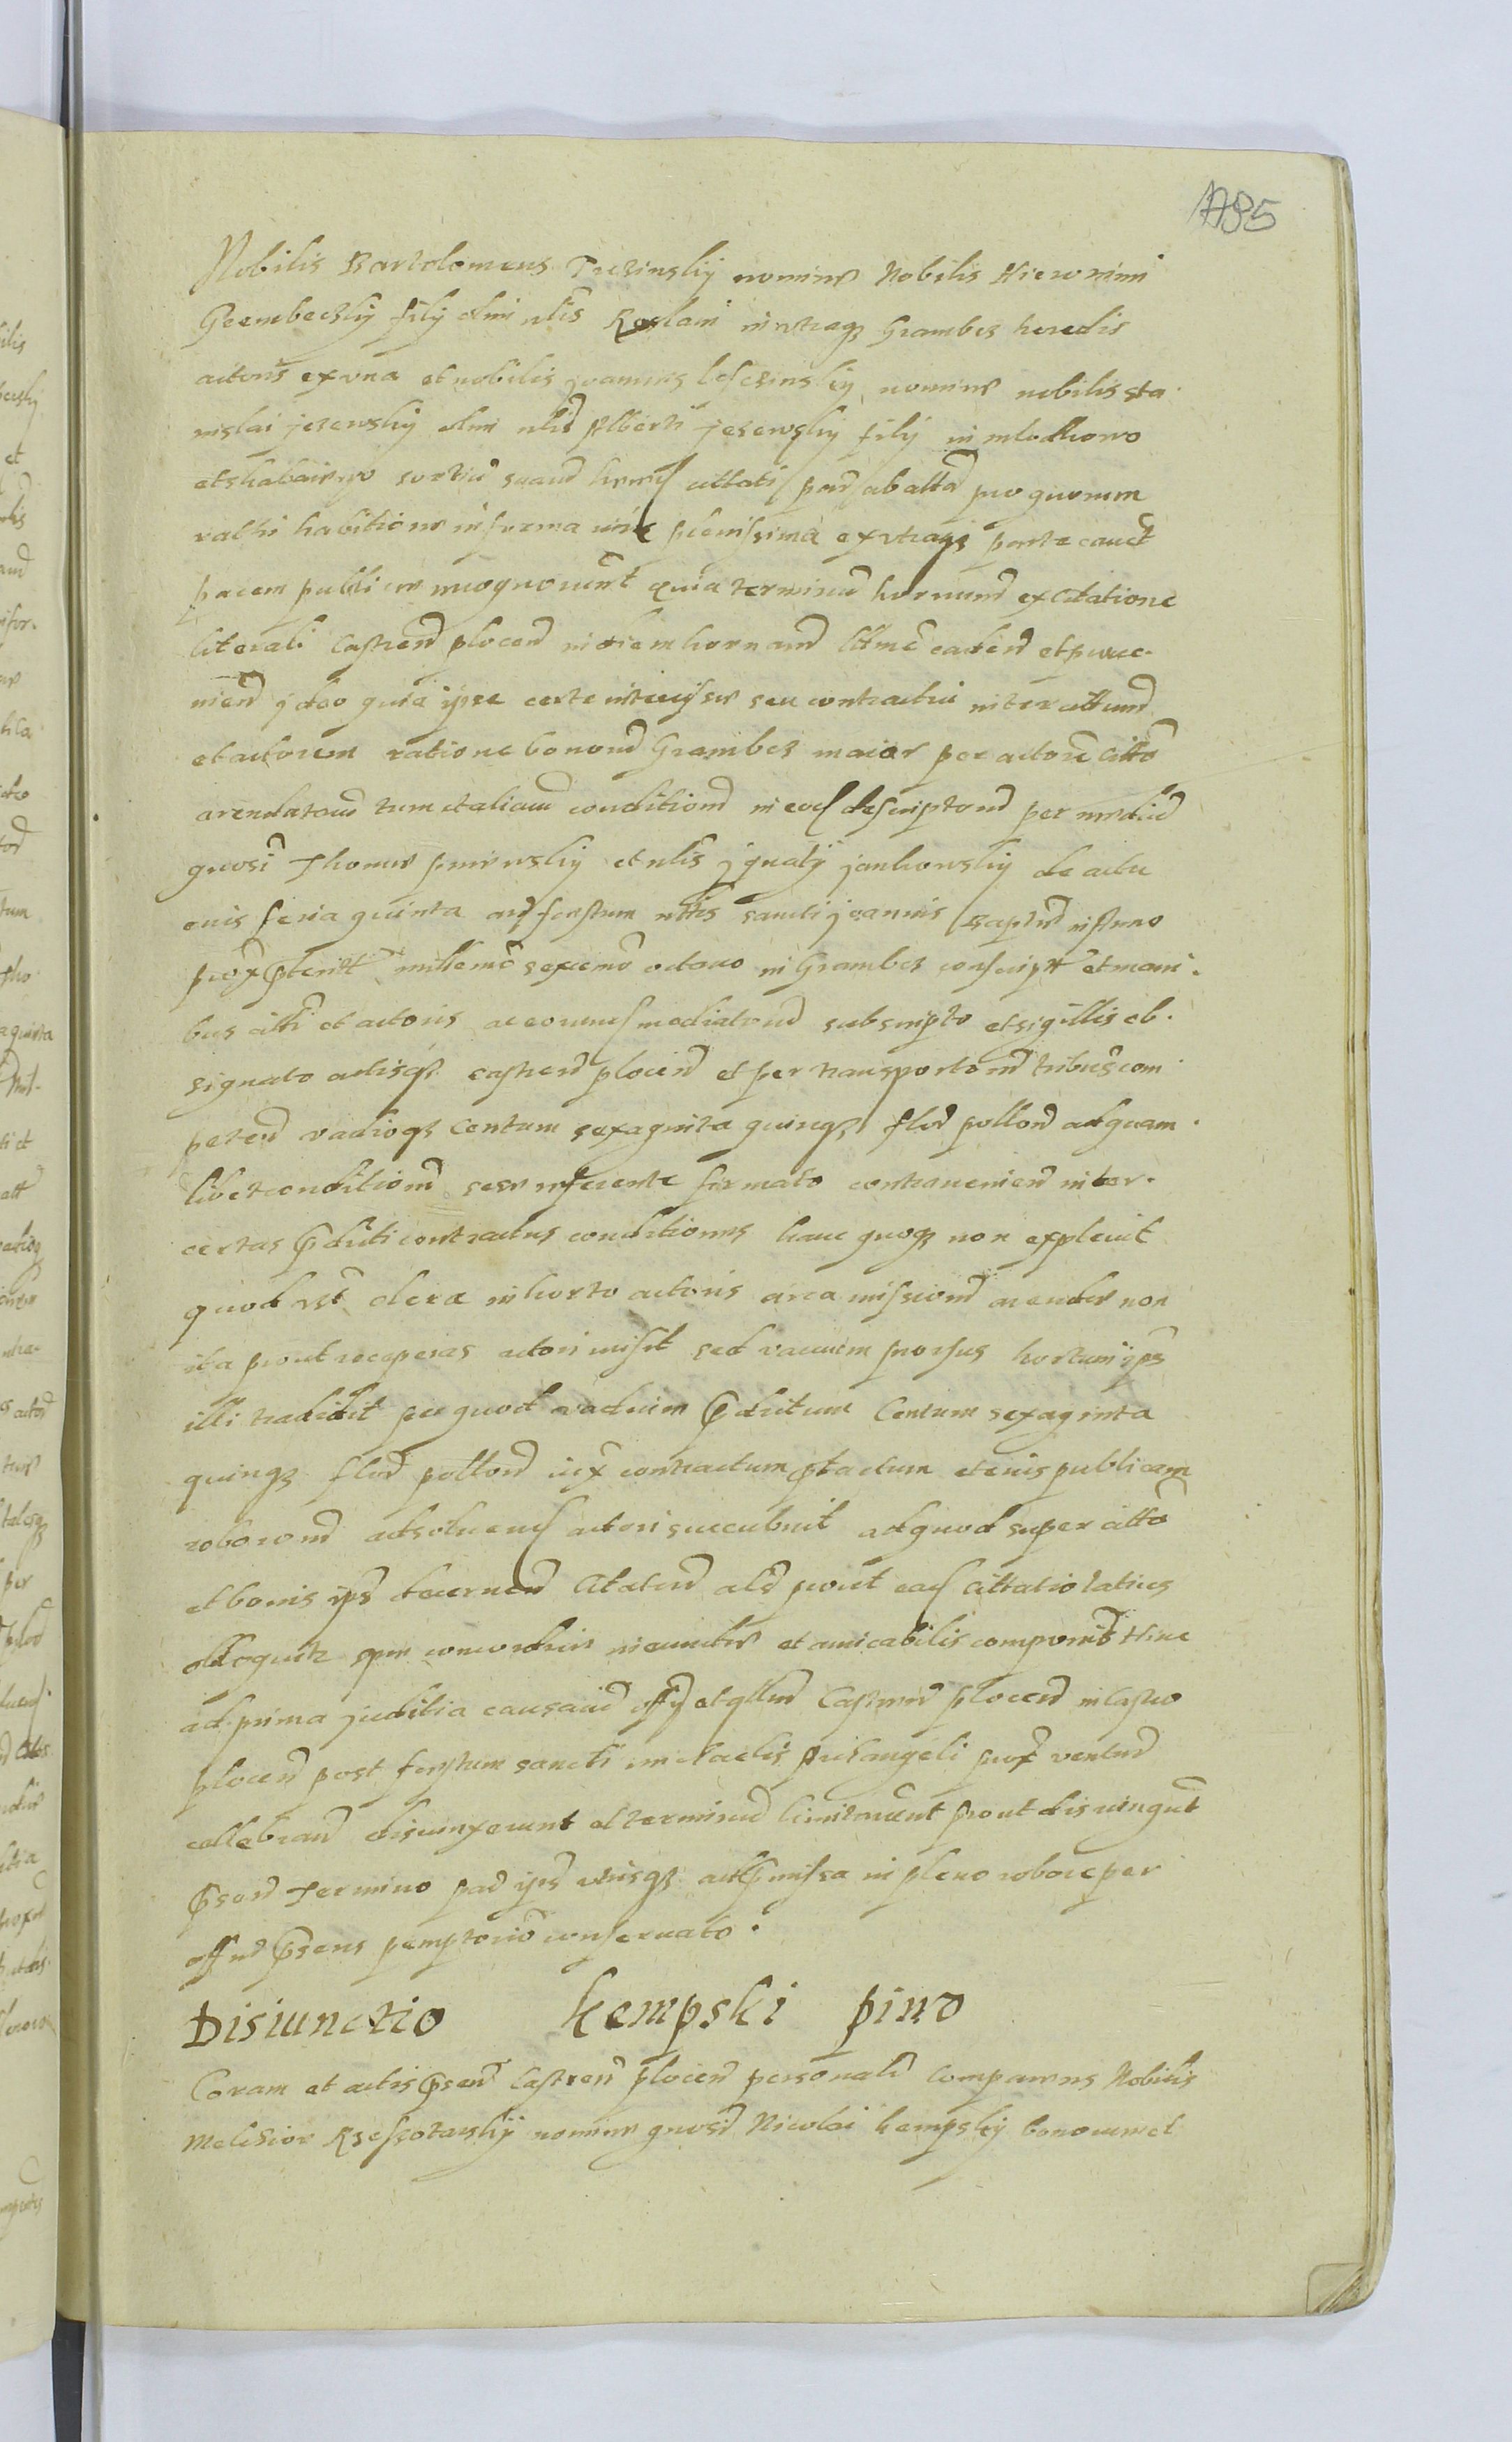 1785
Nobilis Bartolomeus Trczinskij nomine Nobilis Hieronimi
Grembeczkij filij olim nlis Roslani in utraqz Grambcz heredis
actoris ex una et nobilis Joannis nomine nobilis Sta
nislai Jezewskij olim nlis Alberti Jezewskij filij in mlodkowo
et sortiu suaru hered cittati par ab altera pro quorum
rathi habitione in forma iuris plenissima ex utraqz parte cauet
pacem publice recognouert quia terminu hornum ex citatione
literali Castren plocen in diem hornam ltme caden et prove-
nien ideo quia ipse certe intercise seu contractui inter cittum
et actorem ratione bonoru Grambcz maior per actore citto
arendatoru tum et aliaru conditionu in eod descriptoru per mediu
gnosi Thome et nlis Ignatij Jankowskij de actu
euis feria quinta ad festum nttis sancti Joannis Baptist in Anno
prox pterit millemo sexcemo octauo in Grambcz conscript et mani-
bus citti et actoris ac eorund mediatoru subscripto et sigillis ob-
signato actisqz castren plocen et per transportoem tribus com
peten vadioqz Centum sexaginta quinqz flor pollon ad quam
libet conditionu sese referente firmato contrauenien inter
certas pdicti contractus conditiones hanc quoqz non expleuit
quod est olera in horto actoris circa missionem arende non
ita prout receperas actori misit sed vacuum prorsus hortum ips
illi tradidit per quod vadium pdictum Centum sexaginta
quinqz flor pollon iux contractum ptactum et euis publicam
roboroem adsoluend actori succubuit ad quod super citto
et bonis ips decernend Citatur als prout ead Cittatio latius
obloquitr spm concordie ineunde et amicabilis componit Hinc
ad prima juditia causaru offy et qllru Castren plocen in Castro
plocen post festum sancti michaelis Archangeli prox ventur
cellebrand disiunxerunt et terminu limitauert prout disiungut
pson termino par ips utrisqz act pmissa in pleno robore per
offm psens pemptorio conseruato.
Disiunctio Kempski pino
Coram et actis psen Castren plocen personalr comparens Nobilis
Melchior Rzeszotarskij nomine gnosi Nicolai kempskij bonorum et